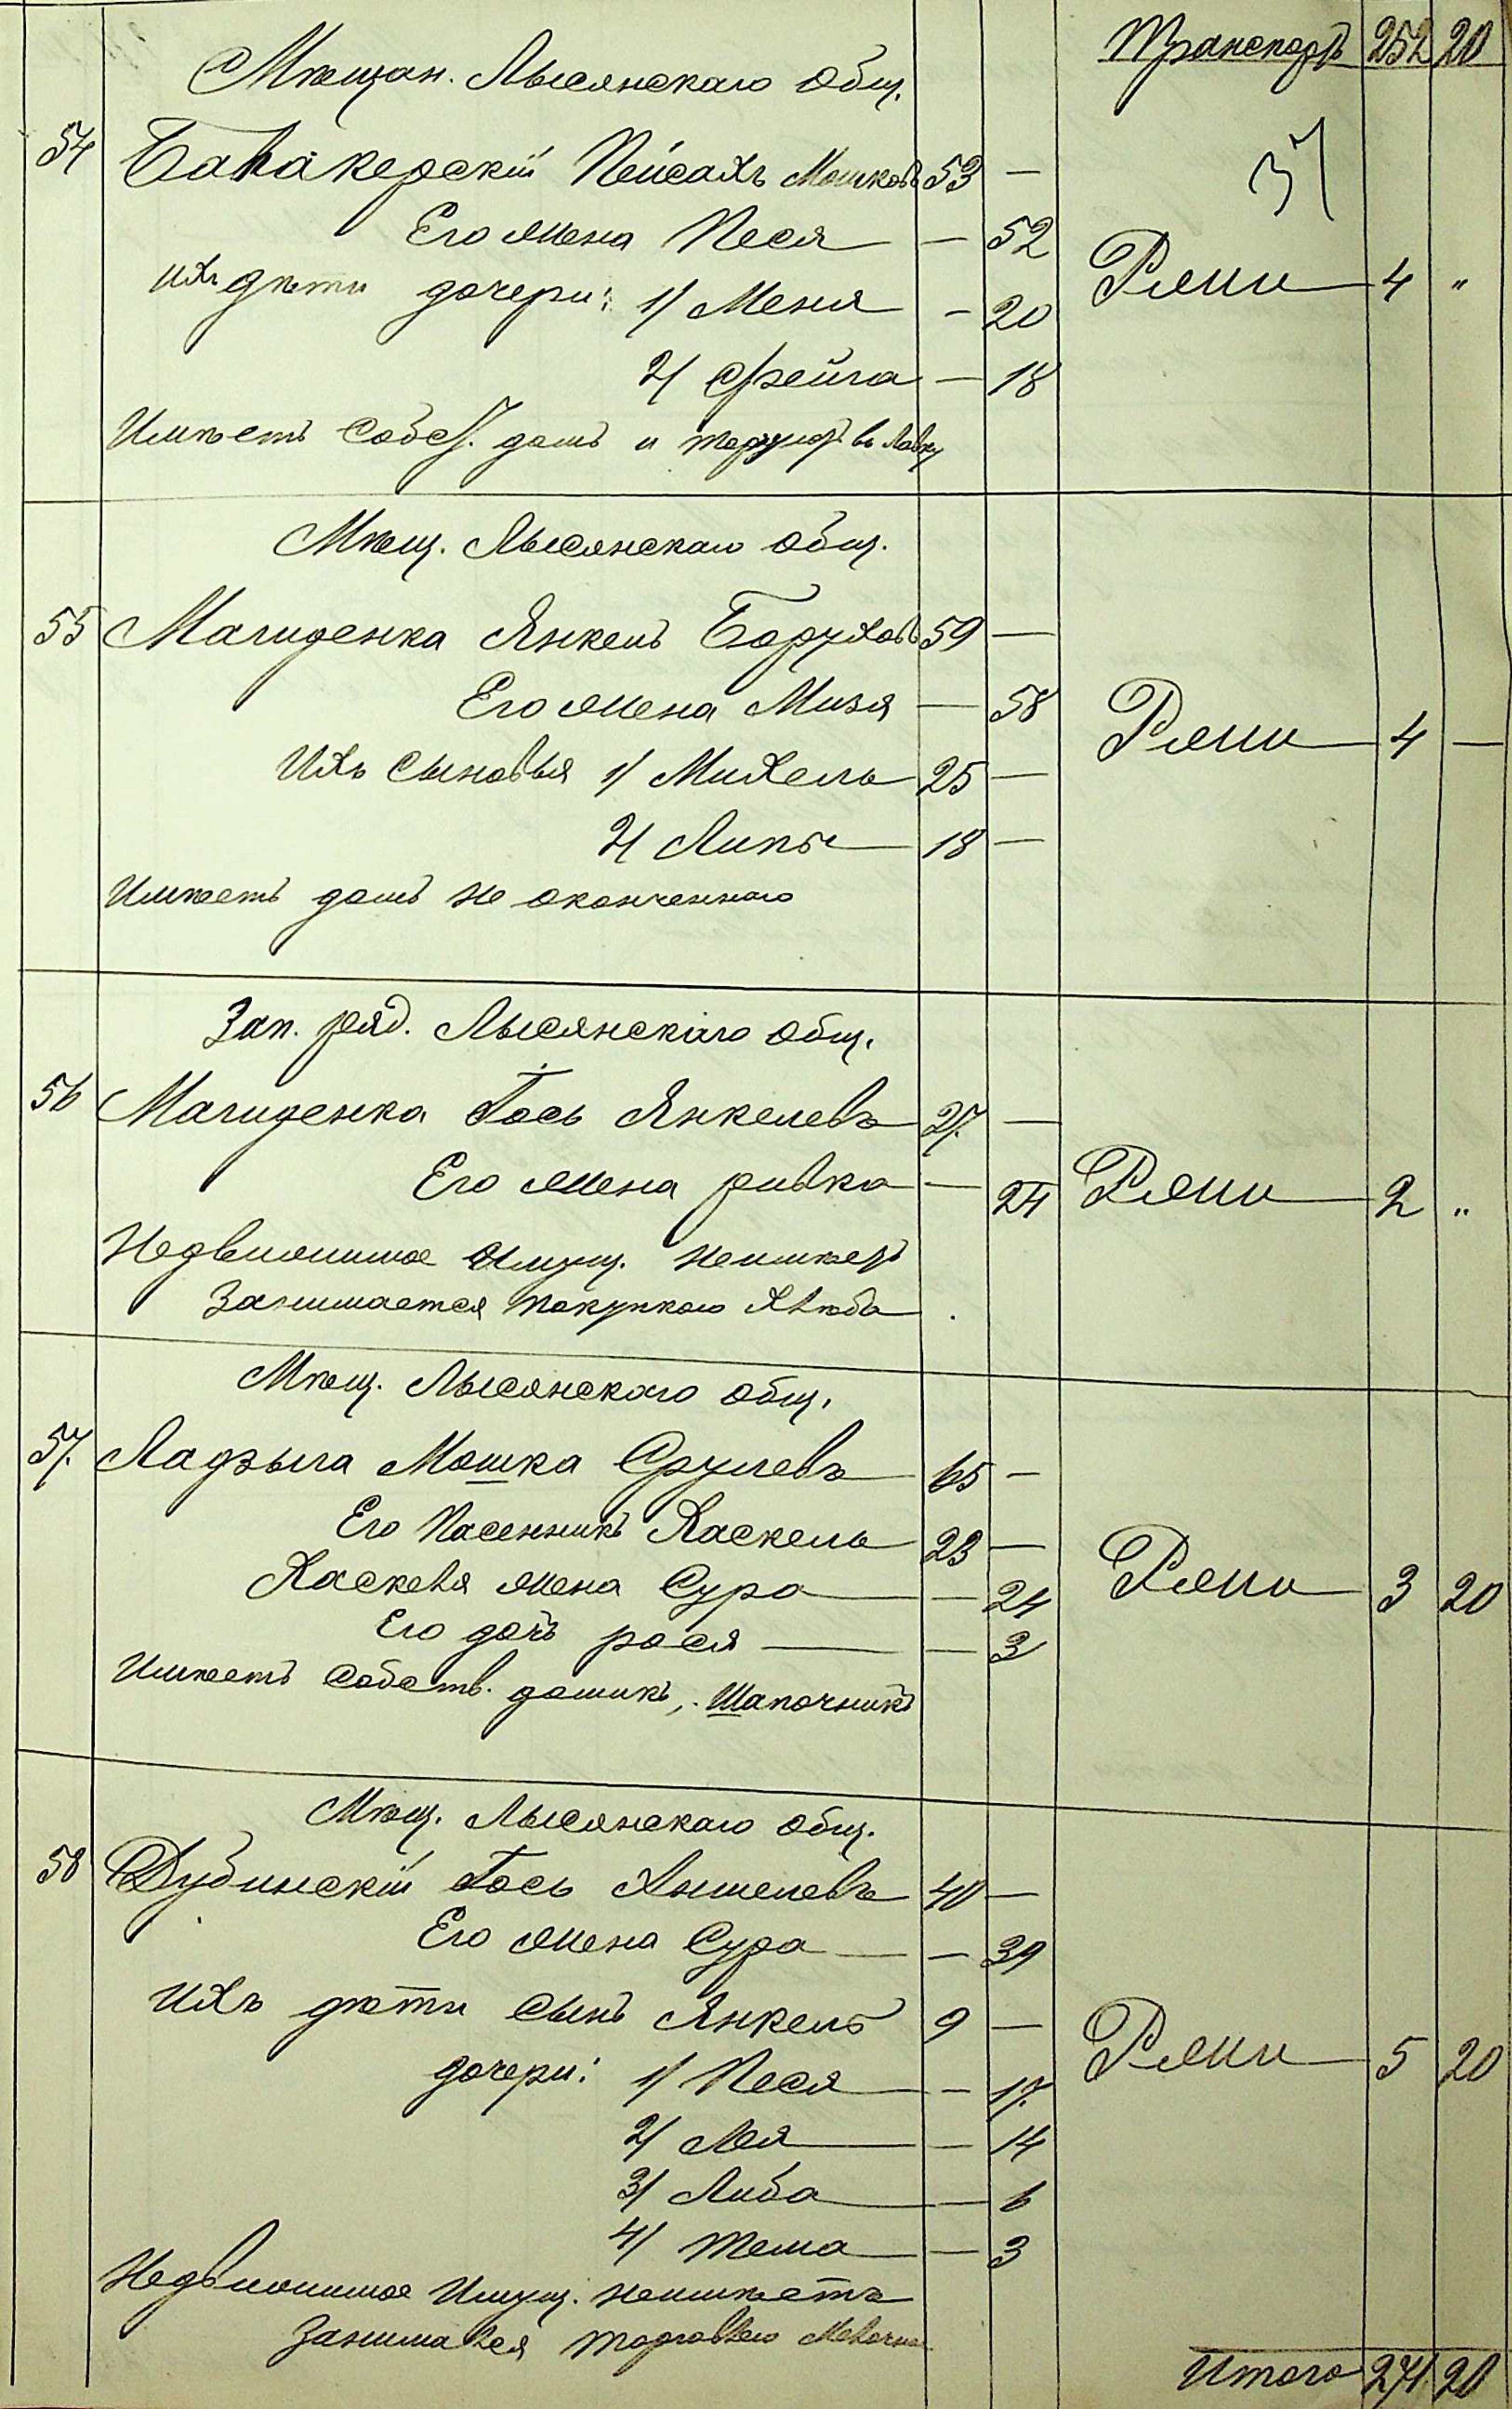 Транспортъ 252 20
Мѣщан. Лысянскаго общ.
37
54 Бабакерскій Пейсахъ Мошковъ 53 —
Его жена Песя — 52
Ряжи 4 "
ихъ дѣти дочери: 1/ Меня — 20
2/ Фрейга — 18
Имѣетъ собст. домъ и торгуетъ въ лавку
Мѣщ. Лысянскаго общ.
55 Магиденка Янкель Боруховъ 59 —
Его жена Мизя — 58
Ряжи 4 —
Ихъ сыновья 1/ Михель 25 —
2/ Липы 18 —
Имѣетъ домъ не оконченнаго
Зап. ряд. Лысянскаго общ.
56 Магиденка Іось Янкелевъ 27. —
Его жена ривка — 24
Ряжи 2 "
Недвижимое имущ. неимѣетъ
Занимается покупкою хлѣба
Мѣщ. Лысянскаго общ.
57. Ладзыга Мошка Срулевъ 65 —
Его Пасенникъ Хаскель 23 —
Хаскеля жена Сура — 24
Ряжи 3 20
Его дочь рося — 3
Имѣетъ собств. домикъ, Шапочникъ
Мѣщ. Лысянскаго общ.
58 Дубинскій Іось Аншелевъ 40 —
Его жена Сура — 39
Ихъ дѣти сынъ Янкель 9 —
Ряжи 5 20
дочери: 1/ Песя — 17.
2/ Лея — 14
3/ Либа — 6
4/ Тема — 3
Недвижимое Имущ. неимѣетъ
Занимался торговлею мелочно
Итого 271 20